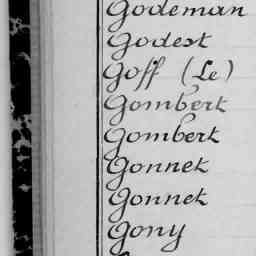 Godeman
Godest
Goff (Le)
Gombert
Gombert
Gonnet
Gonnet
Gony